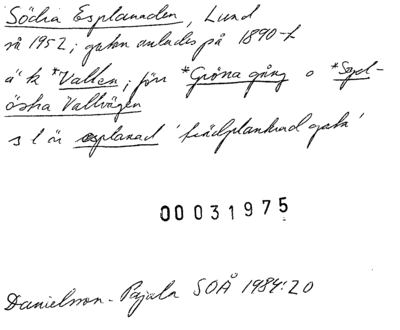 Södra Esplanaden, Lund
så 1952; gatan anlades på 1890-t
ä k *Vallen; förr *Gröna gång o *Syd-
östra Vallvägen
s l är esplanad 'trädplanterad gata'
00031975
Danielsson-Pajala SOÅ 1984:20